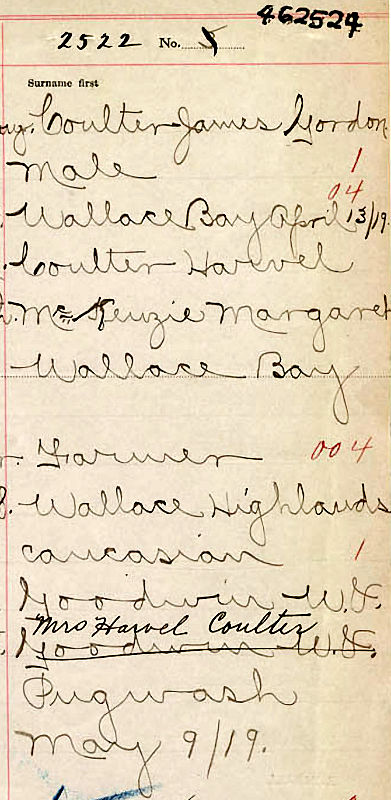 462524
2522 No. 5
Surname first
Coulter James Gordon
Male 1
04
Wallace Bay April 13/19.
Coulter Harvel
McKenzie Margaret
Wallace Bay
Farmer 004
Wallace Highlands
Caucasian 1
Goodwin W.F.
Mrs Harvel Coulter
Goodwin W.F.
Pugwash
May 9/19.